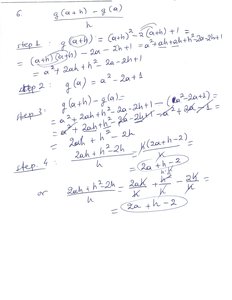 6 g(a+h) - g(a)
h
step 1: g(a+h) = (a+h)² - 2(a+h) + 1 =
= (a+h)(a+h) - 2a - 2h + 1 = a² + ah + ah + h² - 2a - 2h + 1
= a² + 2ah + h² - 2a - 2h + 1
step 2: g(a) = a² - 2a + 1
step 3: g(a+h) - g(a) =
= a² + 2ah + h² - 2a - 2h + 1 - (a² - 2a + 1) =
= a² + 2ah + h² - 2a - 2h + 1 - a² + 2a - 1 =
= 2ah + h² - 2h
step 4: 2ah + h² - 2h / h = h(2a + h - 2) / h =
= 2a + h - 2
or 2ah + h² - 2h / h = 2ah / h + h² / h - 2h / h =
= 2a + h - 2